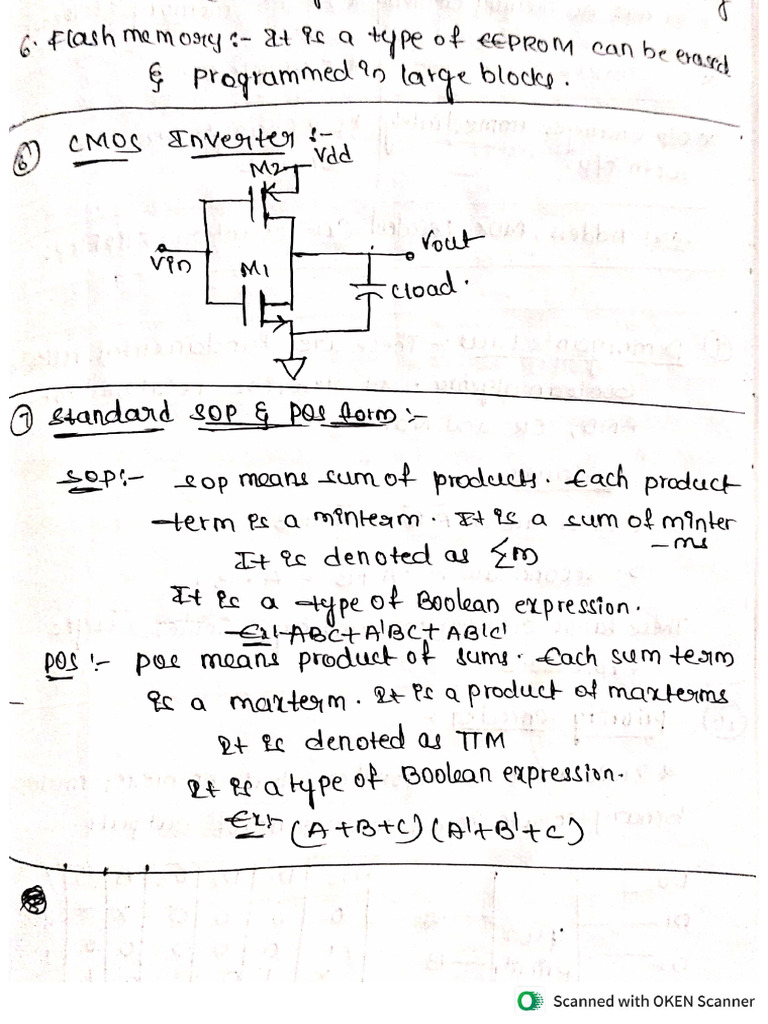 6. Flash memory :- It is a type of EEPROM can be erased
& programmed in large blocks.
6) CMOS Inverter :-
M2 Vdd
Vin
M1
Vout
Cload.
7 Standard SOP & POS form :-
SOP :- SOP means sum of products. Each product
term is a minterm. It is a sum of minter
-ms
It is denoted as Σm
It is a type of Boolean expression.
Ex:- ABC+A'BC+AB'C'
POS :- POS means product of sums. Each sum term
is a maxterm. It is a product of maxterms
It is denoted as πM
It is a type of Boolean expression.
Ex:- (A+B+C)(A'+B'+C)
Scanned with OKEN Scanner